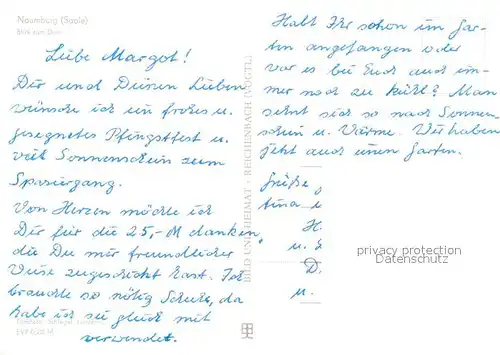 Naumburg (Saale)
Blick zum Dom
Liebe Margot!
Dir und Deinen Lieben
wünsche ich ein frohes u.
gesegnetes Pfingstfest u.
viel Sonnenschein zum
Spaziergang.
Von Herzen möchte ich
Dir für die 25,- M danken,
die Du mir freundlicher
Weise zugeschickt hast. Ich
brauchte so nötig Schuhe, da
habe ich sie gleich mit
verwendet.
BILD UND HEIMAT REICHENBACH (VOGTL)
Habt Ihr schon im Gar-
ten angefangen oder
war es bei Euch auch im-
mer noch zu kühl? Man
sehnt sich so nach Sonnen-
schein u. Wärme. Wir haben
jetzt auch einen Garten.
Grüße
H.
u.
D.
u.
privacy protection
Datenschutz